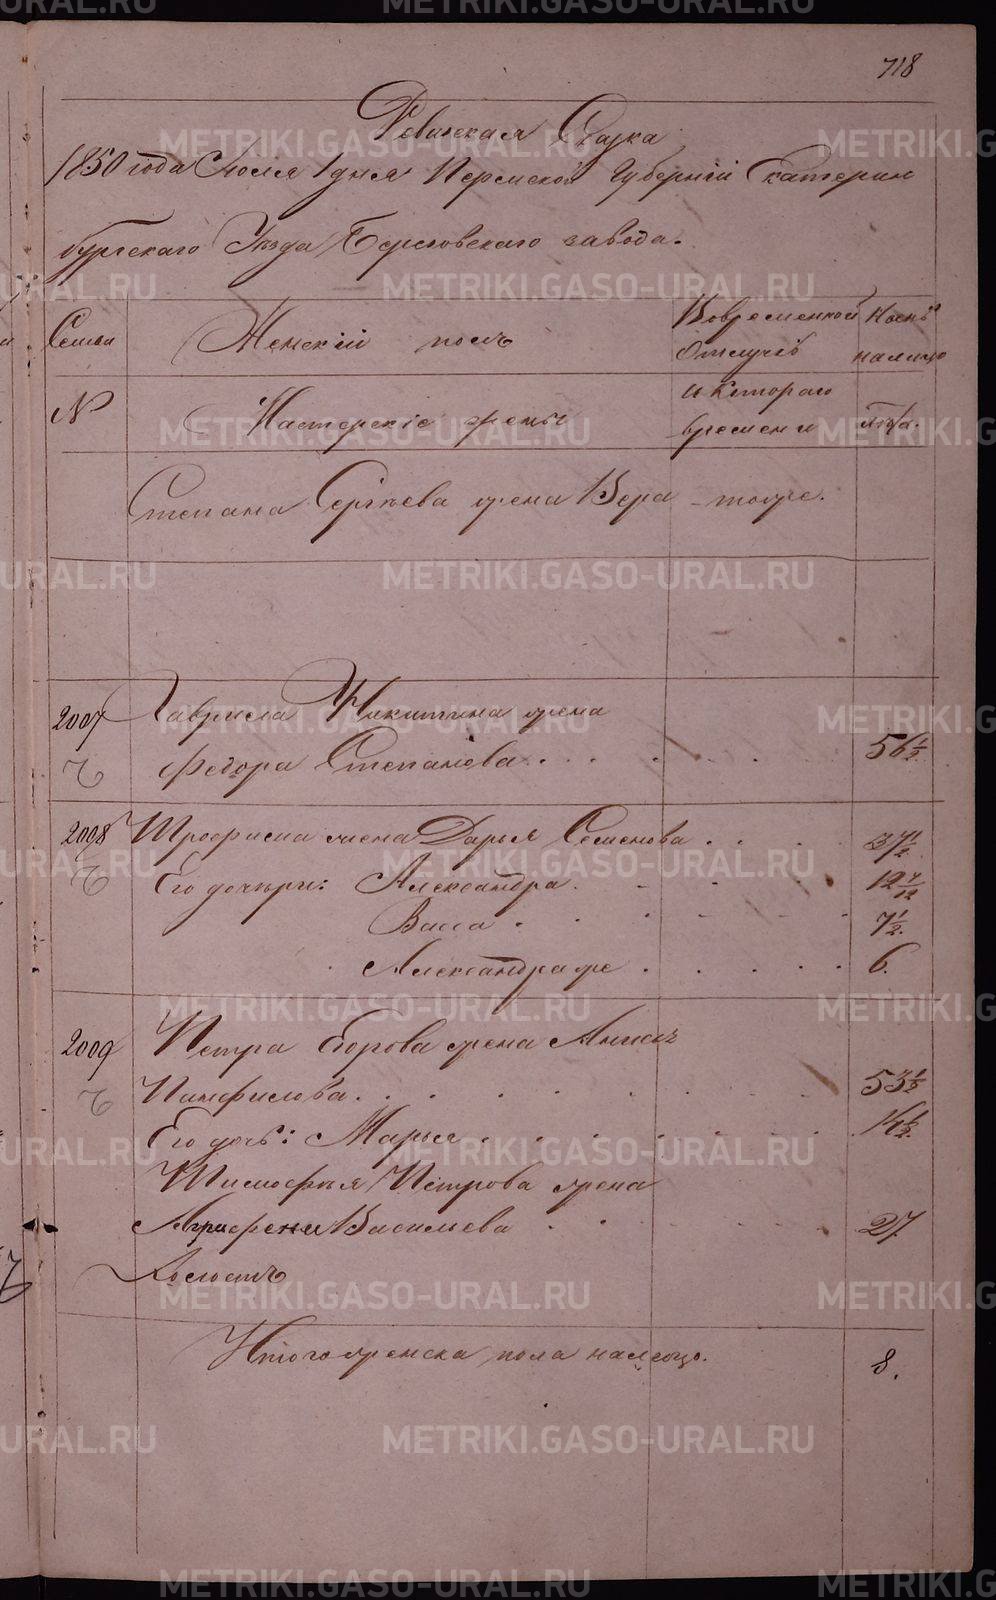 718
Ревизская Сказка
1850 года Июля 1 дня Пермской Губернiи Екатерин
бургскаго Уѣзда Березовскаго завода.
Семьи Женскiй полъ Вовременной Ныне
отлучкѣ налицо
№ Мастерскiе жены и котораго
времени лѣта.
Степана Сергѣева жена Вера тоже.
2007 Гаврила Никитина жена
Федора Степанова 56½
2008 Трофима жена Дарья Семенова 37½
Его дочѣри: Александра 12 7/12
Васса 7½
Александра же 6.
2009 Петра Егорова жена Анна
Панфилова 53½
Его дочь: Марья 14½
Тимофѣя Петрова жена
Агрофена Василиева 27
Холостъ
Итого женска пола налицо. 8.
METRIKI.GASO-URAL.RU